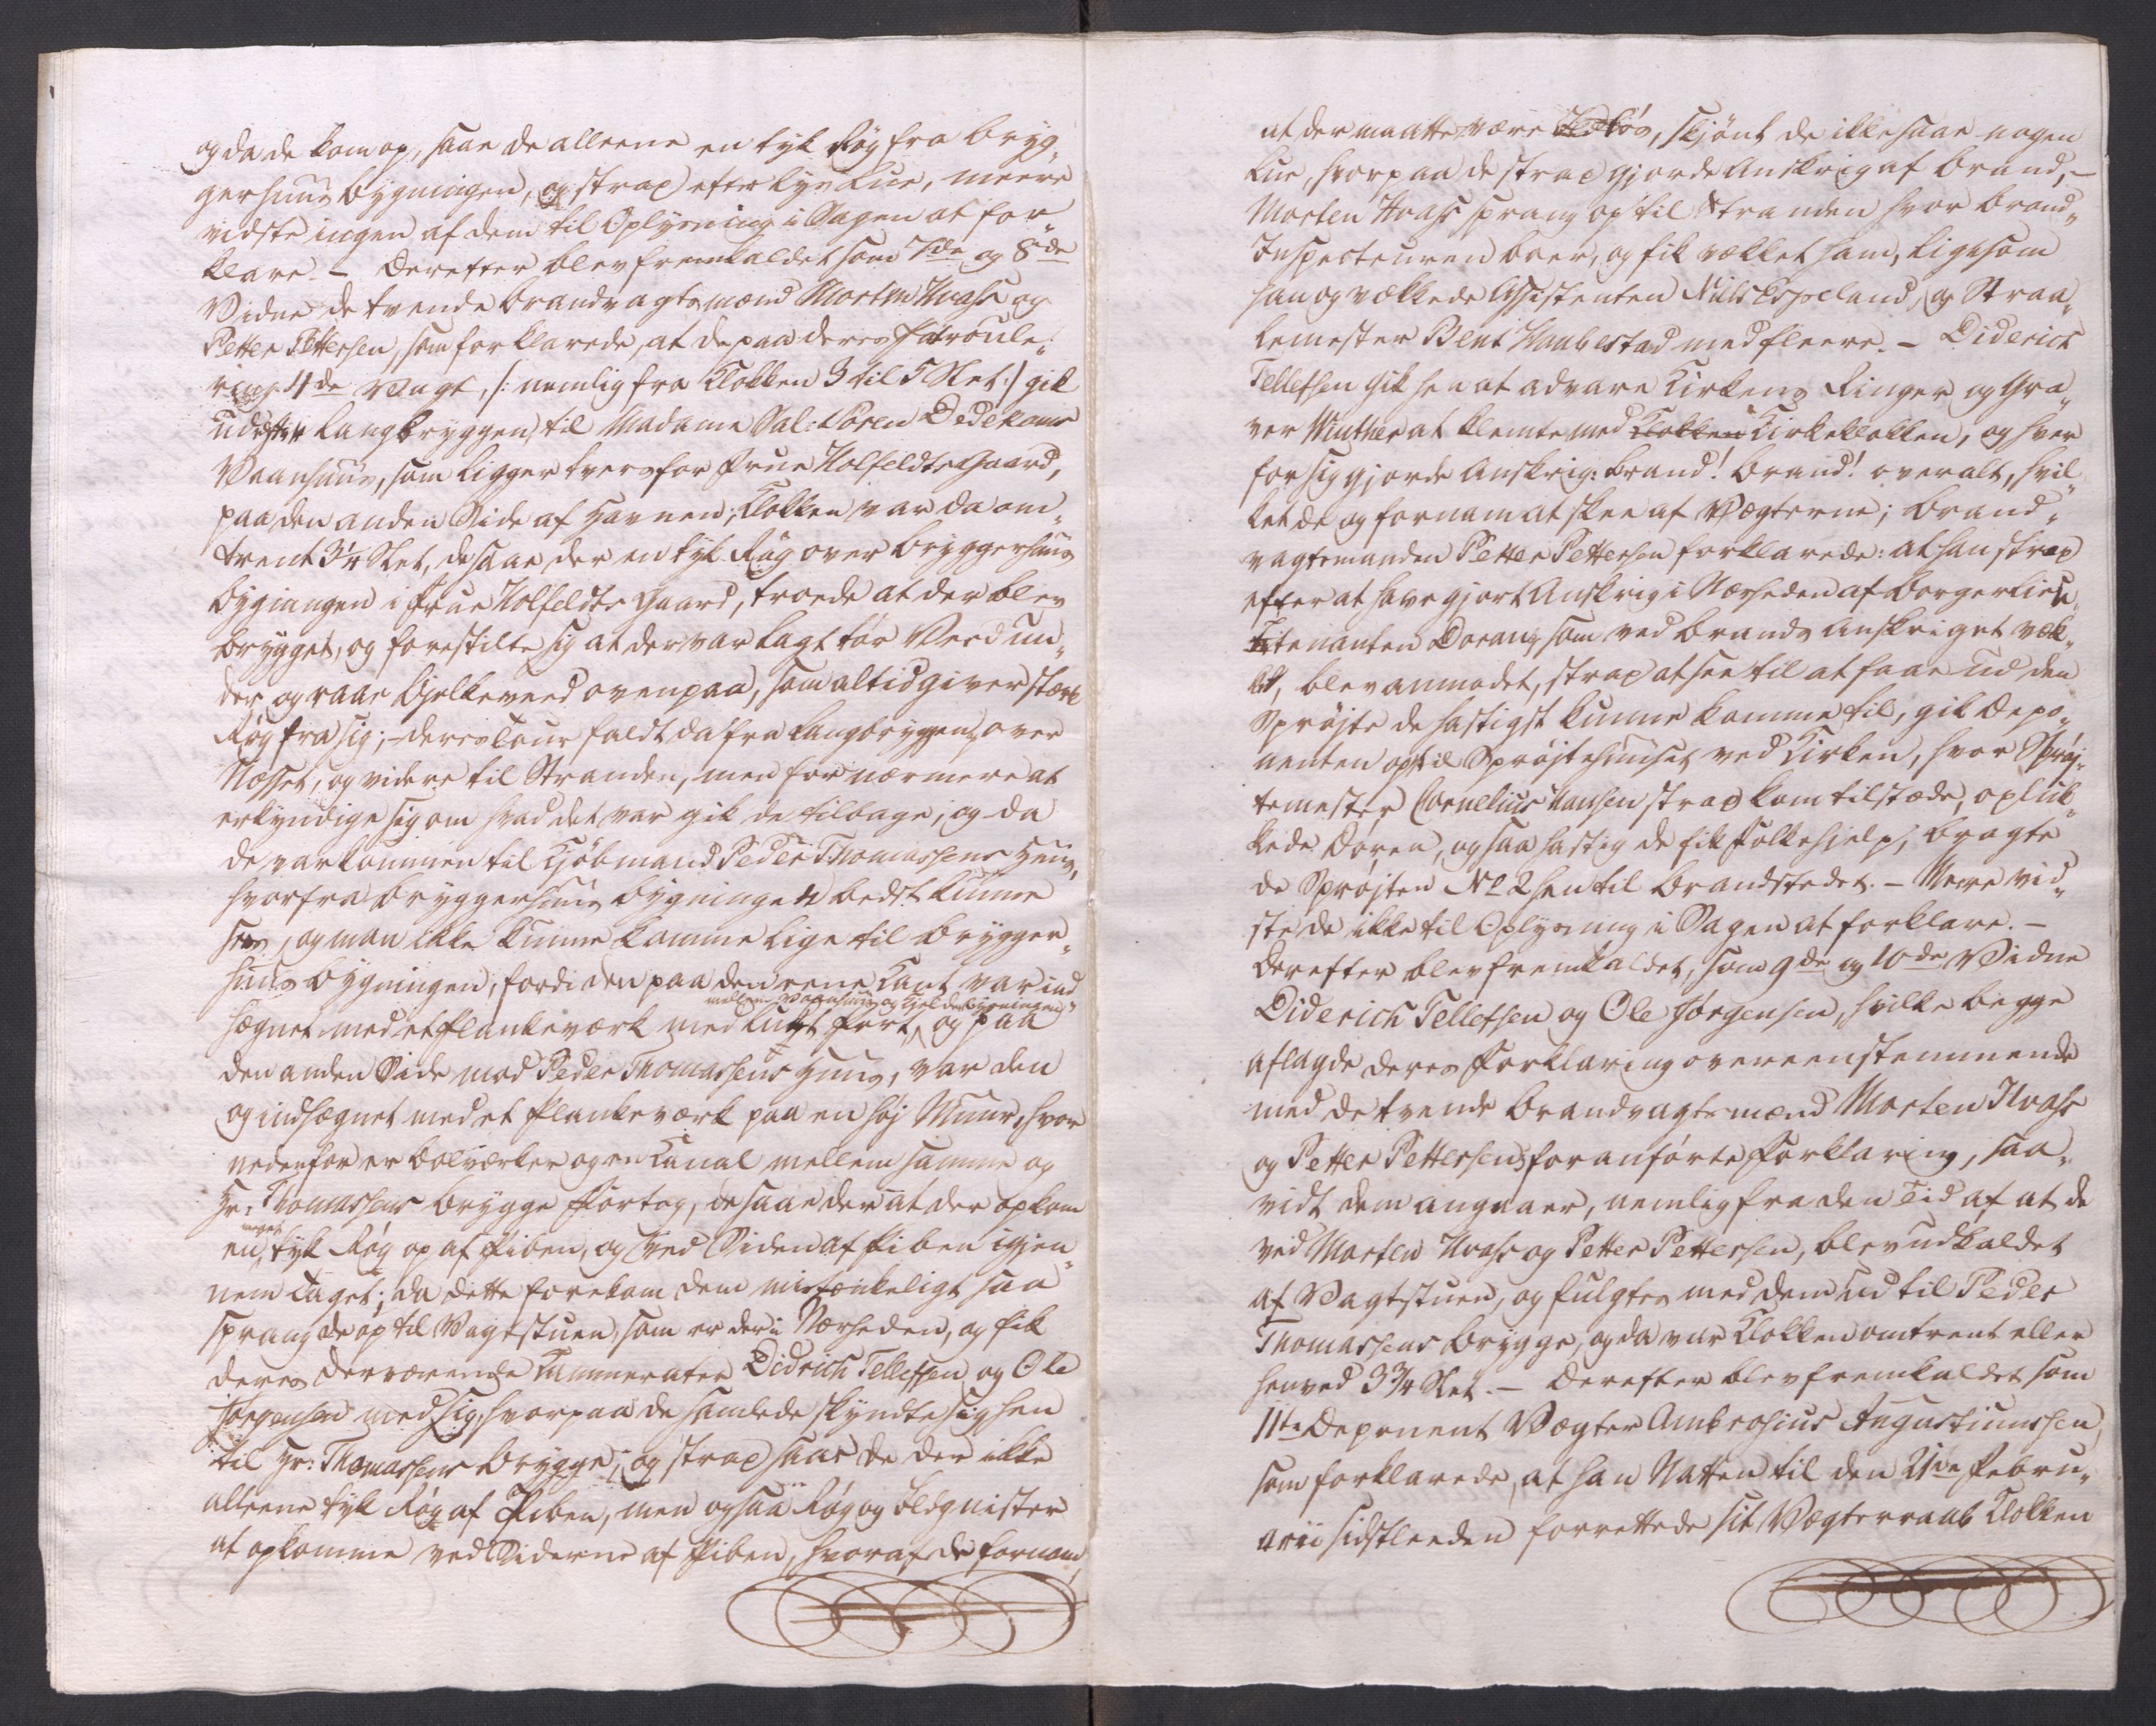 og da de kom op, saae de alleene en tyk Røg fra bryg„
gerhuus bygningen, og strax efter lys Lue, meere
vidste ingen af dem til Oplysning i Sagen at for„
klare. – Derefter blev fremkaldet som 7de og 8de
Vidne de tvende brandvagtsmænd Morten Hvass og
Petter Pettersen, som forklarede, at de paa deres Patroule„
ring 4de Vagt, /: nemlig fra Klokken 3 til 5 Slet :/ gik
ud efter Langbryggen, til Madame Sal: Søren Dedekams
Vaanhuus, som ligger tvers for Frue Holfeldts Gaard,
paa den anden Side af Havnen; Klokken var da om„
trent 3¼ Slet, de saae der en tyk Røg over bryggerhuus
bygningen i Frue Holfeldts Gaard, troede at der blev
brygget, og forestilte sig at der var lagt tør Veed un„
der og raae Bjelkeveed ovenpaa, som altid giver stærk
Røg fra sig; – deres Tour faldt da fra Langbryggen, over
Næsset, og videre til Stranden, men for nærmere at
erkyndige sig om hvad det var gik de tilbage, og da
de var kommen til Kjøbmand Peder Thomassens Huus,
hvorfra bryggerhuus bygningen bedst kunne
sees, og man ikke kunne komme lige til brygger„
huus bygningen, fordi den paa den eene Kant var ind
mellem Vaanhuus og Gjelderbygningen
hægnet med et Plankeværk med lukt Port, og paa
den anden Side mod Peder Thomassens Huus, var den
og indhægnet med et Plankeværk paa en høj Muur, hvor
nedenfor er bolværker og en Canal mellem samme og
Hr: Thomassens brygge Fortog, de saae der at der opkom
meget
en tyk Røg op af Piben, og ved Siden af Piben igjen„
nem Taget; da dette forekom dem mistænkeligt saa
sprang de op til Vagtstuen, som er der i Nærheden, og fik
deres derværende Kammerater Didrich Tellefsen og Ole
Jørgensen med sig, hvorpaa de samlede skyndte sig hen
til Hr: Thomassens brygge; og strax saae de der ikke
alleene tyk Røg af Piben, men ogsaa Røg og Ildgnister
at opkomme ved Siderne af Piben, hvoraf de fornam,
at der maatte være Ildløs, skjønt de ikke saae nogen
Lue, hvorpaa de strax gjorde Anskrig af brand, –
Morten Hvass sprang op til Stranden hvor brand„
Inspecteuren boer, og fik vækket ham, ligesom
han og vækkede Assistenten Niels Espeland, og Straa„
lemester Bent Haabestad med fleere. – Diderich
Tellefsen gik hen at advare Kirkens Ringer og Gra„
ver Winther at klemte med Klokken Kirkeklokken, og hver
for sig gjorde Anskrig: brand! brand! overalt, hvil„
ket de og fornam at skee af Vægterne; brand„
vagtsmanden Petter Pettersen forklarede: at han strax
efter at have gjort Anskrig i Nærheden af borgerlieu„
tenanten Dorang som ved brands Anskriget væk„
ket, blev anmodet, strax at see til at faae ud den
Sprøjte de hastigst kunne komme til, gik Depo„
nenten op til Sprøjtehuuset ved Kirken, hvor Sprøj„
temester Cornelius Hansen strax kom tilstæde, opluk„
kede Døren, og saa hastig de fik Folkehjelp, bragte
de Sprøjten No 2 hen til brandstedet. – Meere vid„
ste de ikke til Oplysning i Sagen at forklare. –
Derefter blev fremkaldet, som 9de og 10de Vidne
Diderich Tellefsen og Ole Jørgensen, hvilke begge
aflagde deres Forklaring overeenstemmende
med de tvende brandvagtsmænd Morten Hvass
og Petter Pettersens foranførte Forklaring, saa„
vidt dem angaaer, nemlig fra den Tid af at de
ved Morten Hvass og Petter Pettersen, blev udkaldet
af Vagtstuen, og fulgtes med dem ud til Peder
Thomassens brygge, og da var Klokken omtrent eller
henved 3¾ Slet. – Derefter blev fremkaldet som
11te Deponent Vægter Ambrosius Augustinussen,
som forklarede, at han Natten til den 21de Febru„
arii sidstleeden forrettede sit Vægterraab Klokken